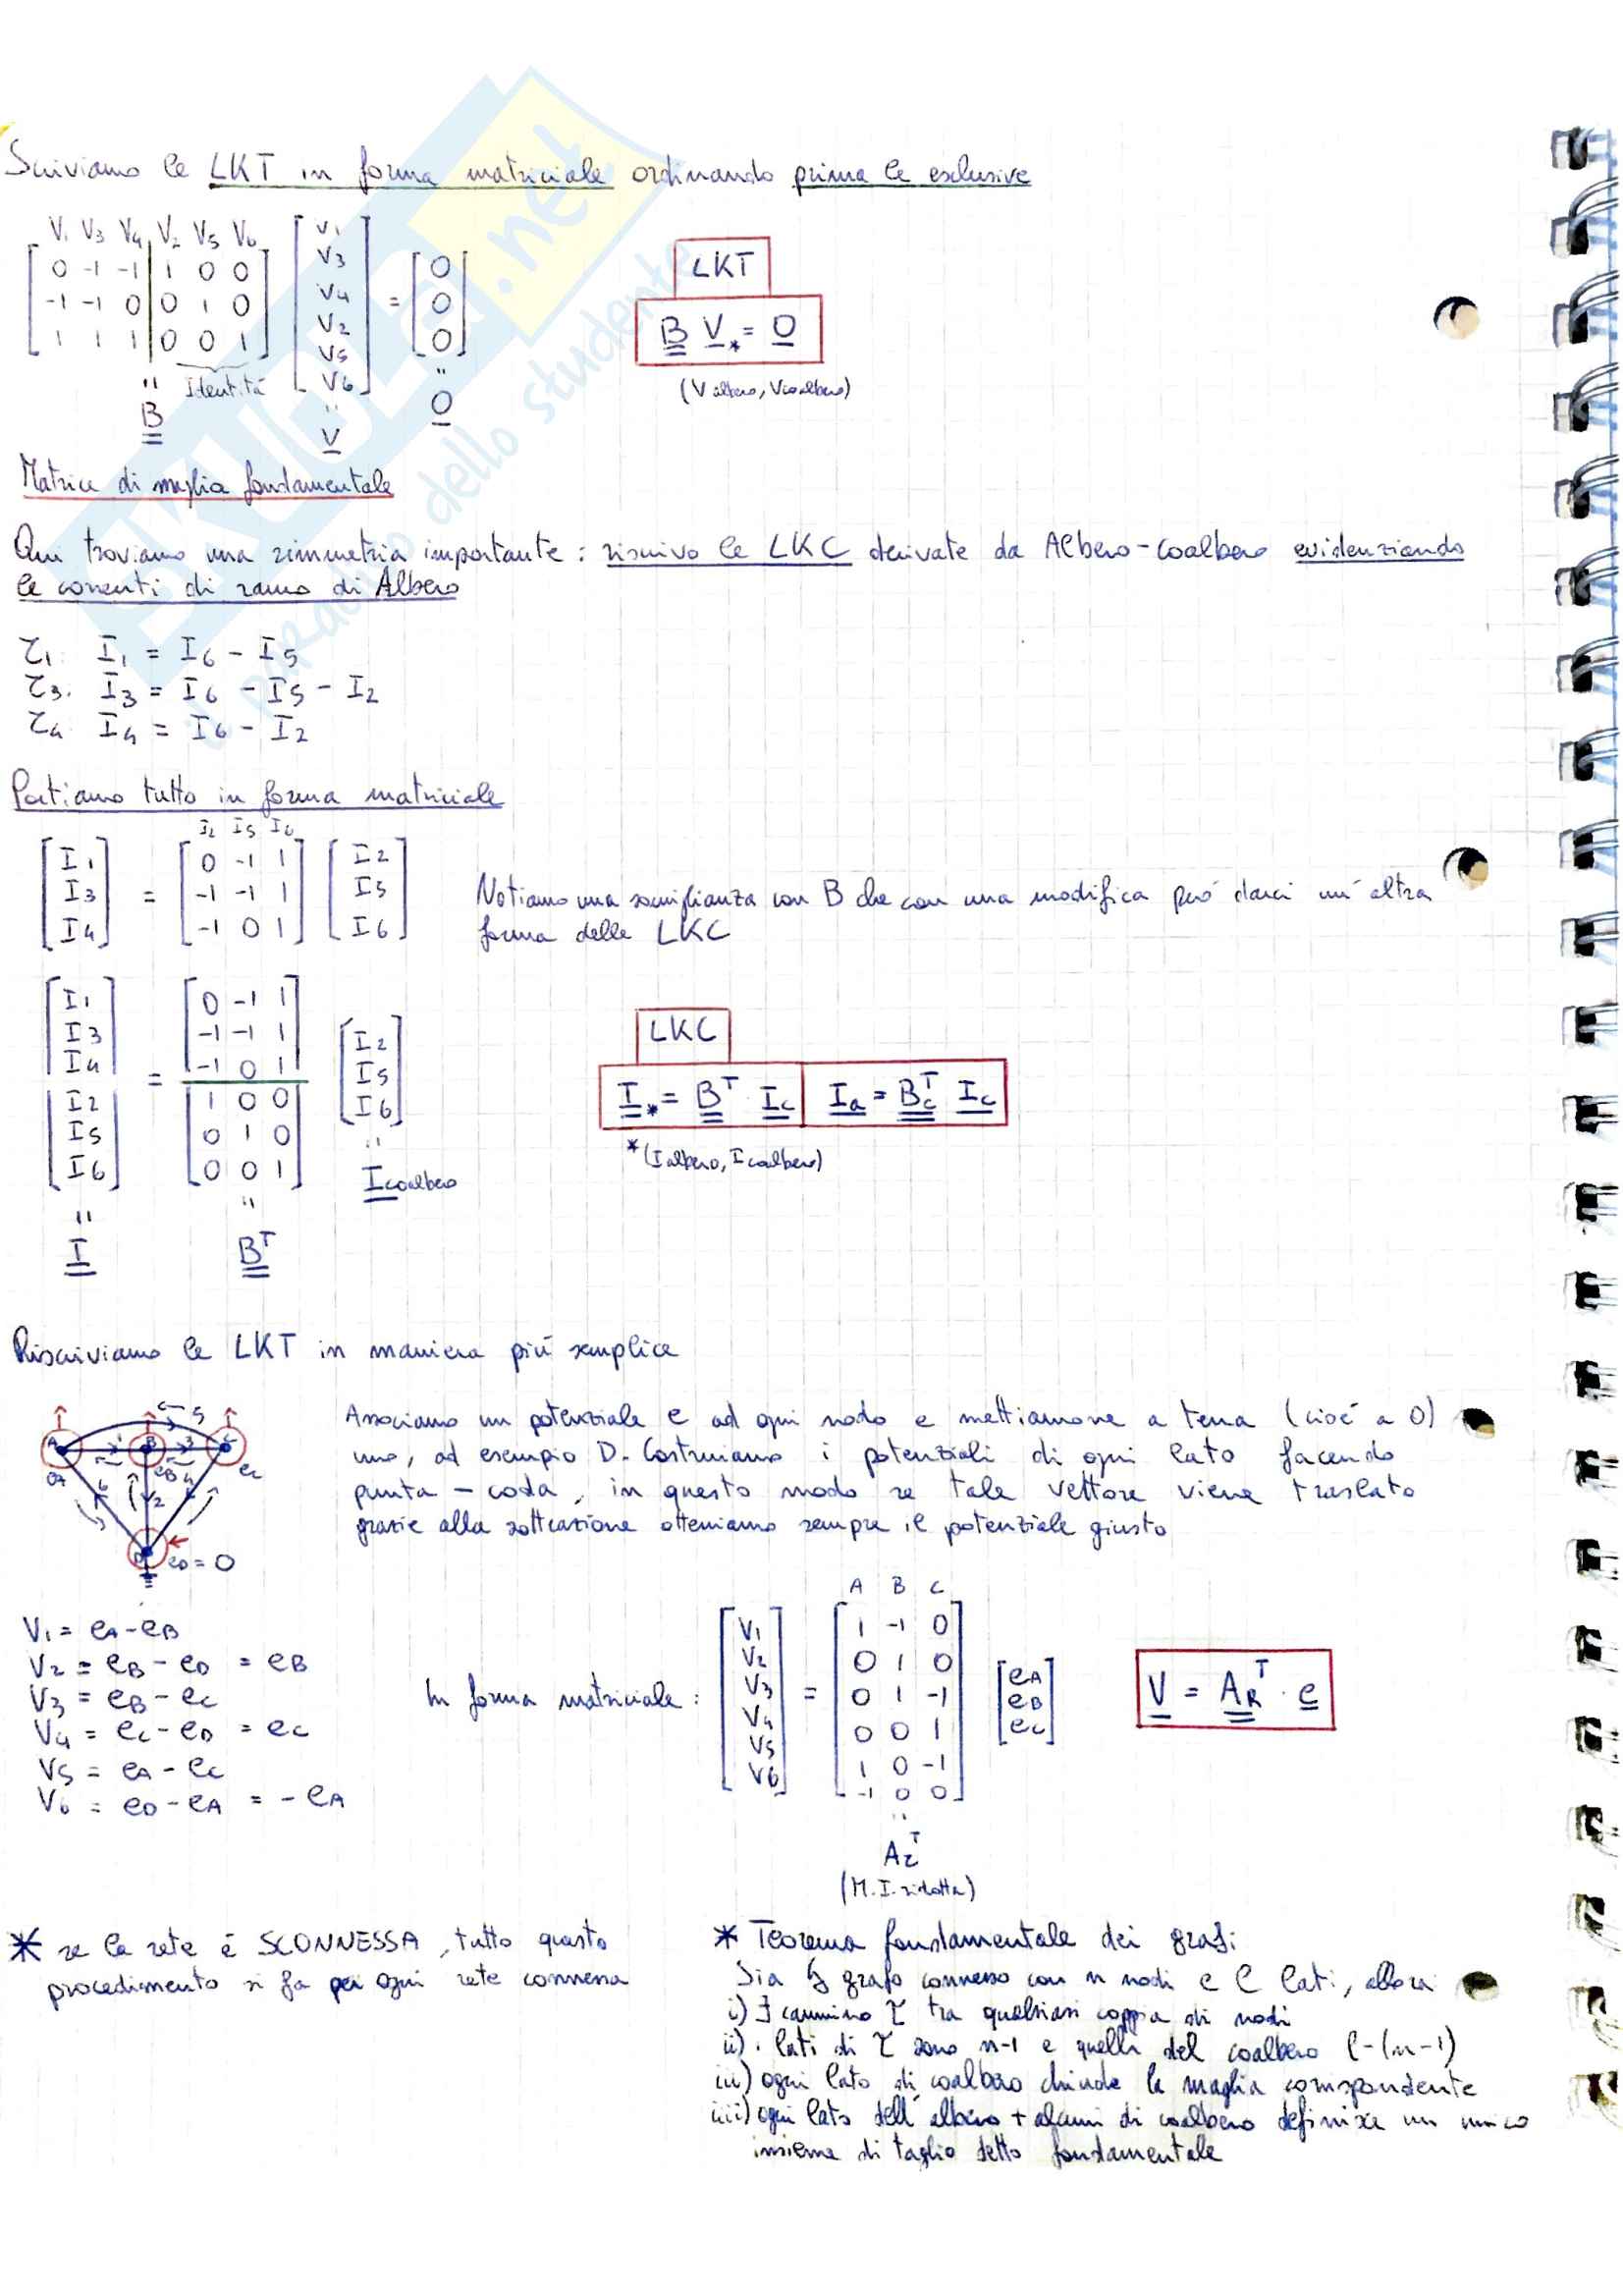 Scriviamo le LKT in forma matriciale ordinando prima le esclusive
V1 V3 V4 V2 V5 V6
0 -1 -1 1 0 0
-1 -1 0 0 1 0
1 1 1 0 0 1
V1
V3
V4
V2
V5
V6
=
0
0
0
Identità
B
V
0
LKT
B V* = 0
(V albero, Vcoalbero)
Matrice di maglia fondamentale
Qui troviamo una simmetria importante: riscrivo le LKC derivate da Albero-Coalbero evidenziando
le correnti di ramo di Albero
τ1: I1 = I6 - I5
τ3: I3 = I6 - I5 - I2
τ4: I4 = I6 - I2
Portiamo tutto in forma matriciale
I2 I5 I6
I1 0 -1 1 I2
I3 = -1 -1 1 I5
I4 -1 0 1 I6
Notiamo una somiglianza con B che con una modifica può darci un'altra
forma delle LKC
I1 0 -1 1
I3 -1 -1 1 I2
I4 = -1 0 1 I5
I2 1 0 0 I6
I5 0 1 0
I6 0 0 1 Icoalbero
I BT
LKC
I* = BT · Ic Ia = BcT Ic
*(Ialbero, Icoalbero)
Riscriviamo le LKT in maniera più semplice
5
A 1 B 3 C
eA eB 4 eC
6 2
D eD = 0
Associamo un potenziale e ad ogni nodo e mettiamone a terra (cioè a 0)
uno, ad esempio D. Costruiamo i potenziali di ogni lato facendo
punta - coda, in questo modo se tale vettore viene traslato
grazie alla sottrazione otteniamo sempre il potenziale giusto
V1 = eA - eB
V2 = eB - eD = eB
V3 = eB - eC
V4 = eC - eD = eC
V5 = eA - eC
V6 = eD - eA = - eA
In forma matriciale:
A B C
V1 1 -1 0
V2 0 1 0 eA
V3 = 0 1 -1 eB
V4 0 0 1 eC
V5 1 0 -1
V6 -1 0 0
V = ART · e
ArT
(M.I. ridotta)
* se la rete è SCONNESSA, tutto questo
procedimento si fa per ogni rete connessa
* Teorema fondamentale dei grafi
Sia G grafo connesso con n nodi e l lati, allora
i) ∃ cammino τ tra qualsiasi coppia di nodi
ii) i lati di τ sono n-1 e quelli del coalbero l-(n-1)
iii) ogni lato di coalbero chiude la maglia corrispondente
iiii) ogni lato dell'albero + alcuni di coalbero definisce un unico
insieme di taglio detto fondamentale